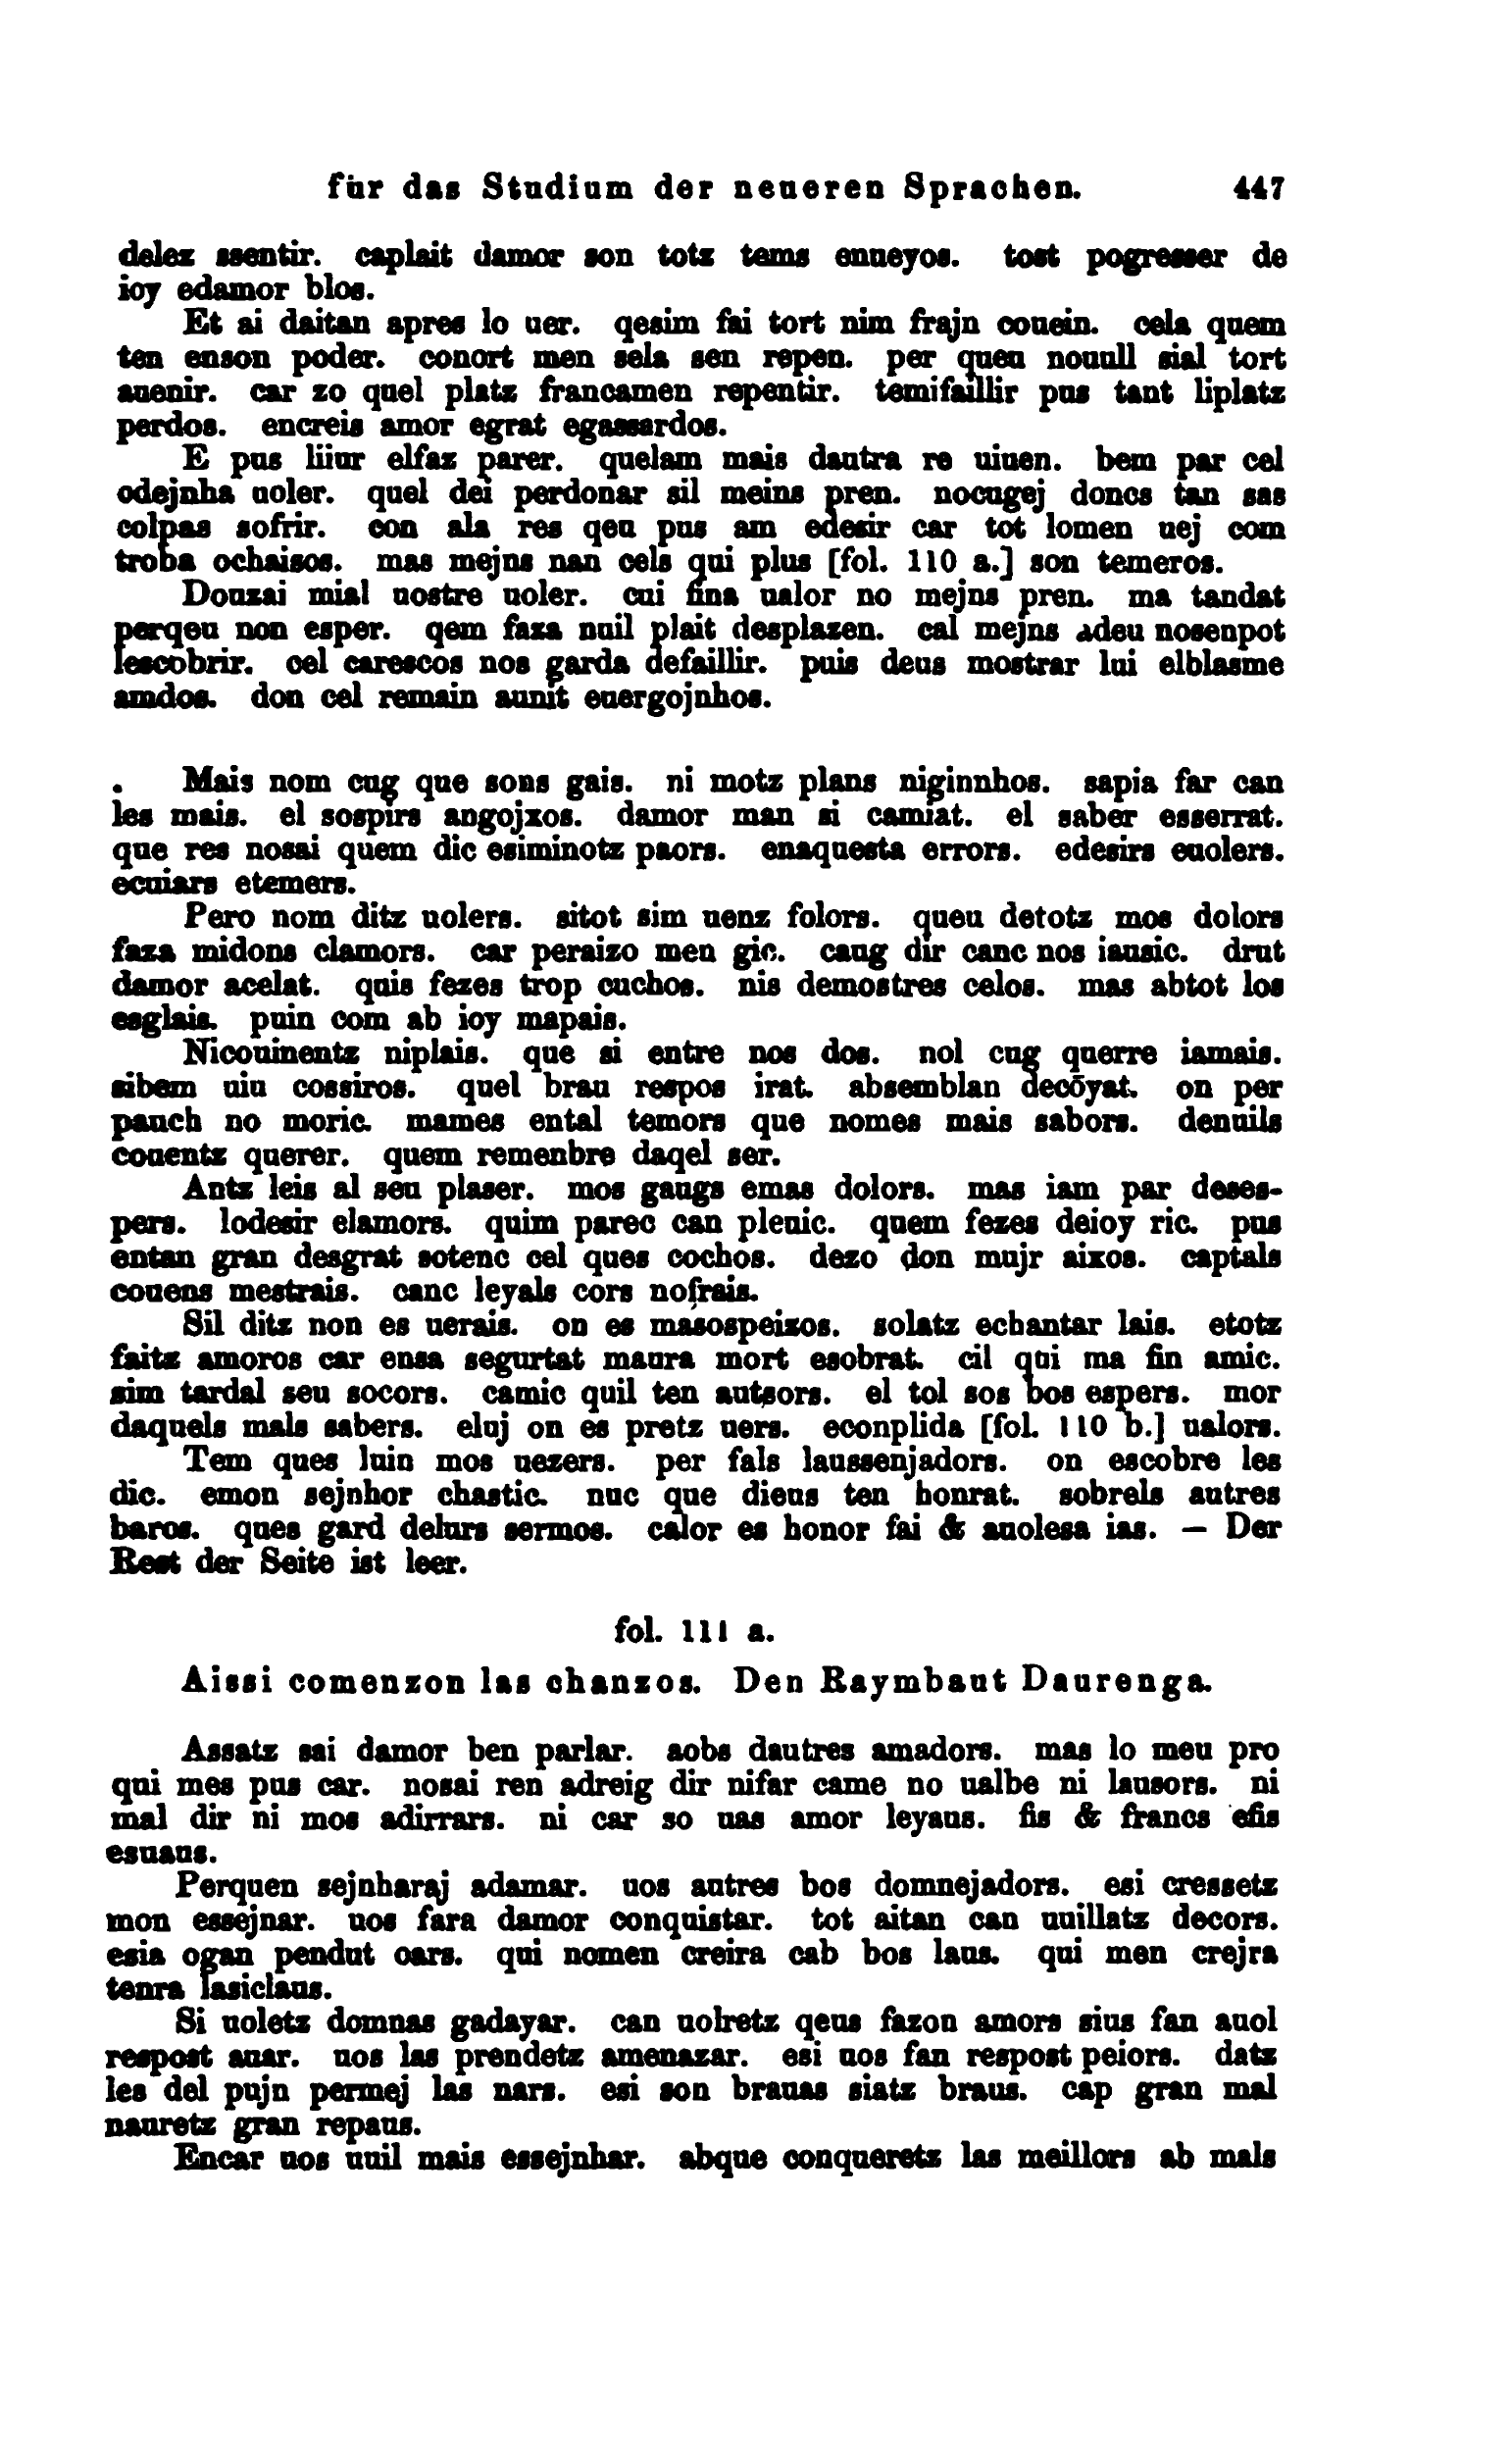 für das Studium der neueren Sprachen. 447
delez ssentir. caplait damor son totz tems enueyos. tost pogresser de
ioy edamor blos.
Et ai daitan apres lo uer. qesim fai tort nim frajn couein. cela quem
ten enson poder. conort men sela sen repen. per queu nouull sial tort
auenir. car zo quel platz francamen repentir. temifaillir pus tant liplatz
perdos. encreis amor egrat egassardos.
E pus liiur elfaz parer. quelam mais dautra re uiuen. bem par cel
odejnha uoler. quel dei perdonar sil meins pren. nocugej doncs tan sas
colpas sofrir. con ala res qeu pus am edesir car tot lomen uej com
troba ochaisos. mas mejns nan cels qui plus [fol. 110 a.] son temeros.
Douzai mial uostre uoler. cui fina ualor no mejns pren. ma tandat
perqeu non esper. qem faza nuil plait desplazen. cal mejns adeu nosenpot
lescobrir. cel carescos nos garda defaillir. puis deus mostrar lui elblasme
amdos. don cel remain aunit euergojnhos.
. Mais nom cug que sons gais. ni motz plans niginnhos. sapia far can
les mais. el sospirs angojxos. damor man si camiat. el saber esserrat.
que res nosai quem dic esiminotz paors. enaquesta errors. edesirs euolers.
ecuiars etemers.
Pero nom ditz uolers. sitot sim uenz folors. queu detotz mos dolors
faza midons clamors. car peraizo men gic. caug dir canc nos iausic. drut
damor acelat. quis fezes trop cuchos. nis demostres celos. mas abtot los
esglais. puin com ab ioy mapais.
Nicouinentz niplais. que si entre nos dos. nol cug querre iamais.
sibem uiu cossiros. quel brau respos irat. absemblan decōyat. on per
pauch no moric. mames ental temors que nomes mais sabors. denuils
couentz querer. quem remenbre daqel ser.
Antz leis al seu plaser. mos gaugs emas dolors. mas iam par deses-
pers. lodesir elamors. quim parec can pleuic. quem fezes deioy ric. pus
entan gran desgrat sotenc cel ques cochos. dezo don mujr aixos. captals
couens mestrais. canc leyals cors nofrais.
Sil ditz non es uerais. on es masospeizos. solatz echantar lais. etotz
faitz amoros car ensa segurtat maura mort esobrat. cil qui ma fin amic.
sim tardal seu socors. camic quil ten autsors. el tol sos bos espers. mor
daquels mals sabers. eluj on es pretz uers. econplida [fol. 110 b.] ualors.
Tem ques luin mos uezers. per fals laussenjadors. on escobre les
dic. emon sejnhor chastic. nuc que dieus ten honrat. sobrels autres
baros. ques gard delurs sermos. calor es honor fai & auolesa ias. — Der
Rest der Seite ist leer.
fol. 111 a.
Aissi comenzon las chanzos. Den Raymbaut Daurenga.
Assatz sai damor ben parlar. aobs dautres amadors. mas lo meu pro
qui mes pus car. nosai ren adreig dir nifar came no ualbe ni lausors. ni
mal dir ni mos adirrars. ni car so uas amor leyaus. fis & francs efis
esuaus.
Perquen sejnharaj adamar. uos autres bos domnejadors. esi cressetz
mon essejnar. uos fara damor conquistar. tot aitan can uuillatz decors.
esia ogan pendut oars. qui nomen creira cab bos laus. qui men crejra
tenra lasiclaus.
Si uoletz domnas gadayar. can uolretz qeus fazon amors sius fan auol
respost auar. uos las prendetz amenazar. esi uos fan respost peiors. datz
les del pujn permej las nars. esi son brauas siatz braus. cap gran mal
nauretz gran repaus.
Encar uos uuil mais essejnhar. abque conqueretz las meillors ab mals